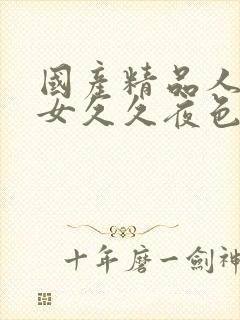 國產精品人
女久久夜色
十年磨一劍神